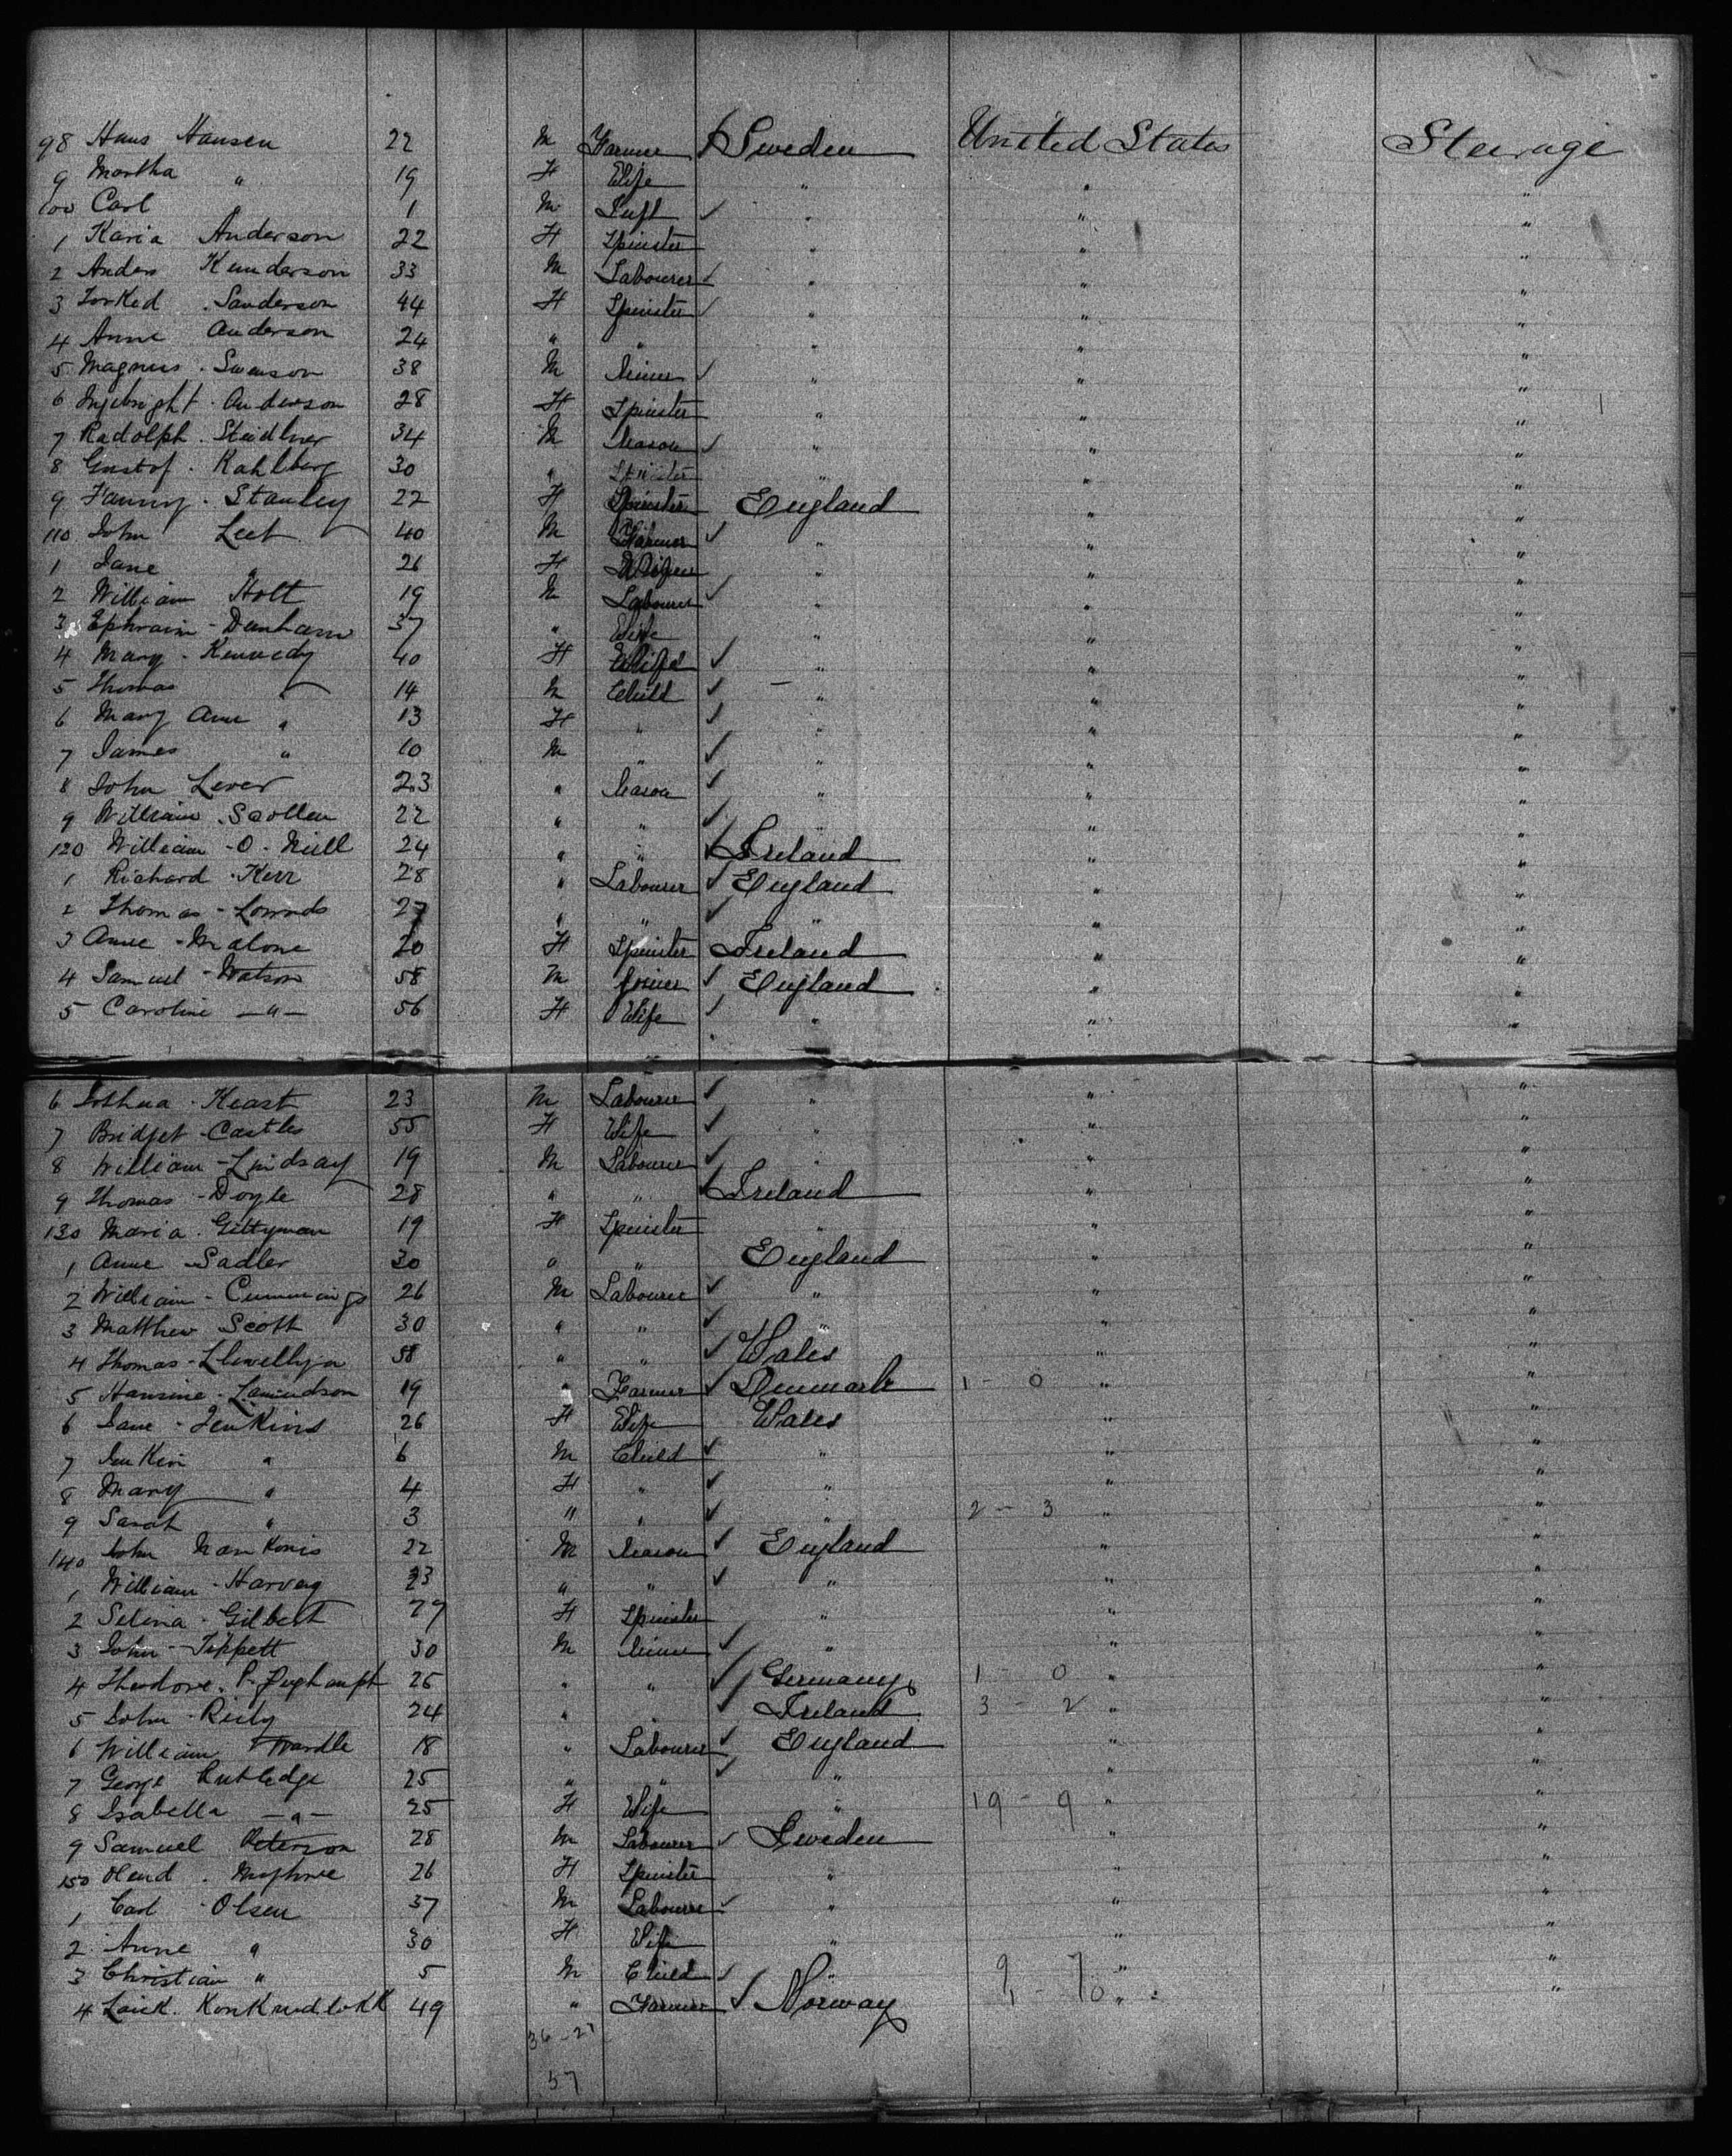 98 Hans Hansen 22 M Farmer Sweden United States Steerage
9 Martha " 19 F Wife " " "
100 Carl " 1 M Inft " " "
1 Karia Anderson 22 F Spinster " " "
2 Anders Kunderson 33 M Labourer " " "
3 Sanderson 44 F Spinster " " "
4 Anne Anderson 24 " " " " "
5 Magnus Swenson 38 M Miner " " "
6 Ingebright Anderson 28 F Spinster " " "
7 Radolph 34 M Mason " " "
8 Gustof Kahlberg 30 " " " "
9 Fanny Stanley 22 F Spinster England " "
110 John Leet 40 M Farmer " " "
1 Jane " 26 F " " "
2 William Holt 19 M Labourer " " "
3 Ephraim - Danham 37 " Wife " " "
4 Mary - Kennedy 40 F Wife " " "
5 Thomas " 14 M Child " " "
6 Mary Ann " 13 F " " " "
7 James " 10 M " " " "
8 John Lever 23 " Mason " " "
9 William Scollen 22 " " " " "
120 William - O - Niell 24 " " Ireland " "
1 Richard Kerr 28 " Labourer England " "
2 Thomas - Lownds 27 " " " " "
3 Anne - Malone 20 F Spinster Ireland " "
4 Samuel - Watson 58 M Joiner England " "
5 Caroline - " - 56 F Wife " " "
6 Joshua - Keast 23 M Labourer " " "
7 Bridget - Castles 55 F Wife " " "
8 William - Lindsay 19 M Labourer " " "
9 Thomas - Doyle 28 " " Ireland " "
130 Maria Gittyman 19 F Spinster " " "
1 Anne - Sadler 30 " " England " "
2 William - Cummings 26 M Labourer " " "
3 Matthew Scott 30 " " " " "
4 Thomas - Llewellyn 58 " " Wales " "
5 Hansine 19 " Farmer Denmark 1 - 0 " "
6 Jane - Jenkins 26 F Wife Wales " "
7 Jenkin " 6 M Child " " "
8 Mary " 4 F " " " "
9 Sarah " 3 " " " 2 - 3 " "
140 John 22 M Mason England " "
1 William - Harvey 23 " " " " "
2 Selina - Gilbert 27 F Spinster " " "
3 John - Tippett 30 M Miner " " "
4 Theodore P. 25 " " Germany 1 - 0 " "
5 John - Reily 24 " " Ireland 3 - 2 " "
6 William Wardle 18 " Labourer England " "
7 George Rutledge 25 " " " " "
8 Isabella - " - 25 F Wife " 19 - 9 " "
9 Samuel Peterson 28 M Labourer Sweden " "
150 26 F Spinster " " "
1 Carl - Olsen 37 M Labourer " " "
2 Anne " 30 F Wife " " "
3 Christian " 5 M Child " " "
4 49 " Farmer Norway " "
36 - 21
57